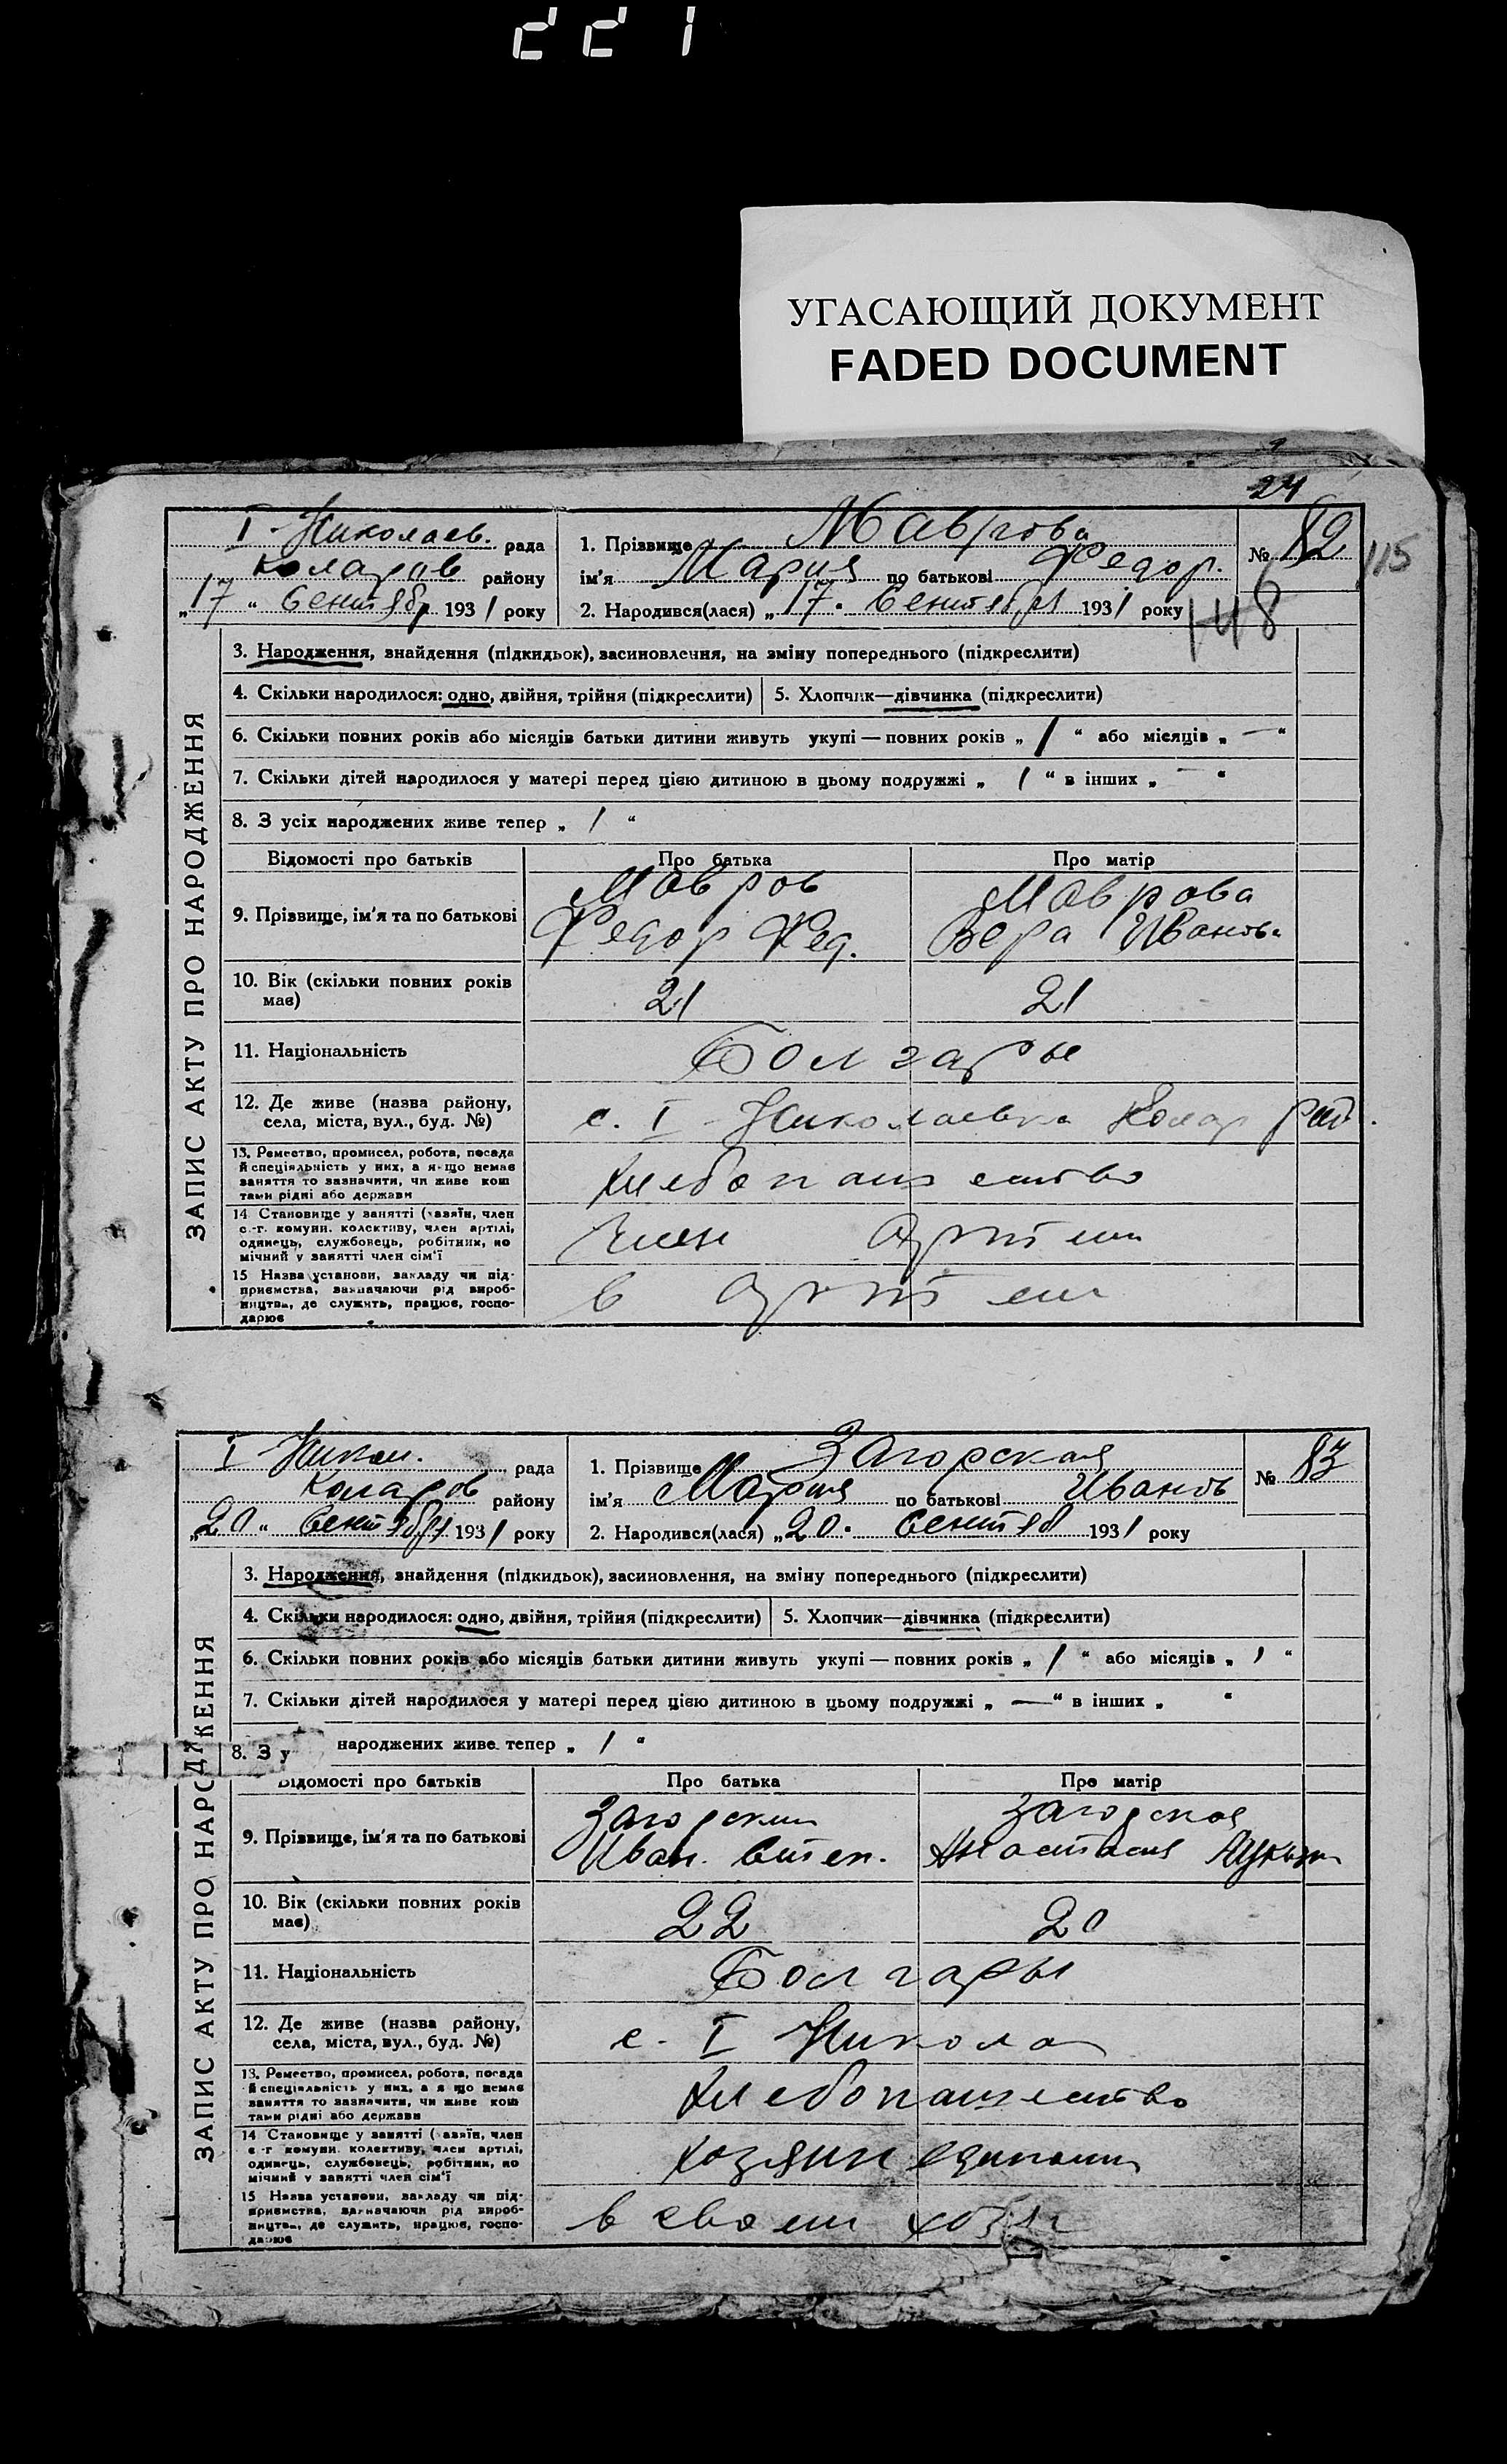 221
УГАСАЮЩИЙ ДОКУМЕНТ
FADED DOCUMENT
24
I-Николаев. рада
Коларов району
„17“ Сентябр 1931 року
1. Прізвище Маврова
ім'я Мария по батькові Федор.
2. Народився(лася) „17. Сентября 1931 року
№ 82
115
148
ЗАПИС АКТУ ПРО НАРОДЖЕННЯ
3. Народження, знайдення (підкидьок), засиновлення, на зміну попереднього (підкреслити)
4. Скільки народилося: одно, двійня, трійня (підкреслити)
5. Хлопчик—дівчинка (підкреслити)
6. Скільки повних років або місяців батьки дитини живуть укупі — повних років „ 1 “ або місяців „ — “
7. Скільки дітей народилося у матері перед цією дитиною в цьому подружжі „ 1 “ в інших „ — “
8. З усіх народжених живе тепер „ 1 “
Відомості про батьків Про батька Про матір
9. Прізвище, ім'я та по батькові
Мавров
Федор Фед.
Маврова
Вера Иванов.
10. Вік (скільки повних років
має)
21 21
11. Національність
Болгары
12. Де живе (назва району,
села, міста, вул., буд. №)
с. I-Николаевка Колар рай.
13. Ремество, промисел, робота, посада
й спеціяльність у них, а якщо немає
заняття то зазначити, чи живе кош
тами рідні або держави
Хлебопашество
14 Становище у занятті (хазяїн, член
с.-г. комуни, колективу, член артілі,
одинець, службовець, робітник, по
мічний у занятті член сім'ї
Член Артели
15 Назва установи, закладу чи під-
приємства, зазначаючи рід вироб-
ництва, де служить, працює, госпо-
дарює
в Артели
I Никол. рада
Коларов району
„20“ Сентября 1931 року
1. Прізвище Загорская
ім'я Мария по батькові Иванов
2. Народився(лася) „20. Сентяб 1931 року
№ 83
ЗАПИС АКТУ ПРО НАРОДЖЕННЯ
3. Народження, знайдення (підкидьок), засиновлення, на зміну попереднього (підкреслити)
4. Скільки народилося: одно, двійня, трійня (підкреслити)
5. Хлопчик—дівчинка (підкреслити)
6. Скільки повних років або місяців батьки дитини живуть укупі — повних років „ 1 “ або місяців „ “
7. Скільки дітей народилося у матері перед цією дитиною в цьому подружжі „ — “ в інших „ “
8. З у народжених живе тепер „ 1 “
Відомості про батьків Про батька Про матір
9. Прізвище, ім'я та по батькові
Загорский
Иван. Степ.
Загорская
Анастасия
10. Вік (скільки повних років
має)
22 20
11. Національність
Болгары
12. Де живе (назва району,
села, міста, вул., буд. №)
с. I Никола
13. Ремество, промисел, робота, посада
й спеціяльність у них, а якщо немає
заняття то зазначити, чи живе кош
тами рідні або держави
Хлебопашество
14 Становище у занятті (хазяїн, член
с-г комуни, колективу, член артілі,
одинець, службовець, робітник, по
мічний у занятті член сім'ї
хозяин
15 Назва установи, закладу чи під-
приємства, зазначаючи рід вироб-
ництва, де служить, працює, госпо-
дарює
в своем хозя